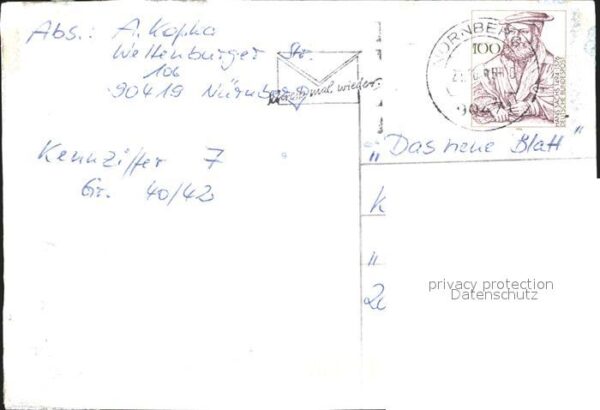 Abs.: A. Kopka
Weltenburger Str.
106
90419 Nürnberg
mal wieder.
NÜRNBERG
100
HANS SACHS 1494-1576
DEUTSCHE BUNDESPOST
"Das neue Blatt"
Kennziffer 7
Gr. 40/42
K
"
privacy protection
Datenschutz